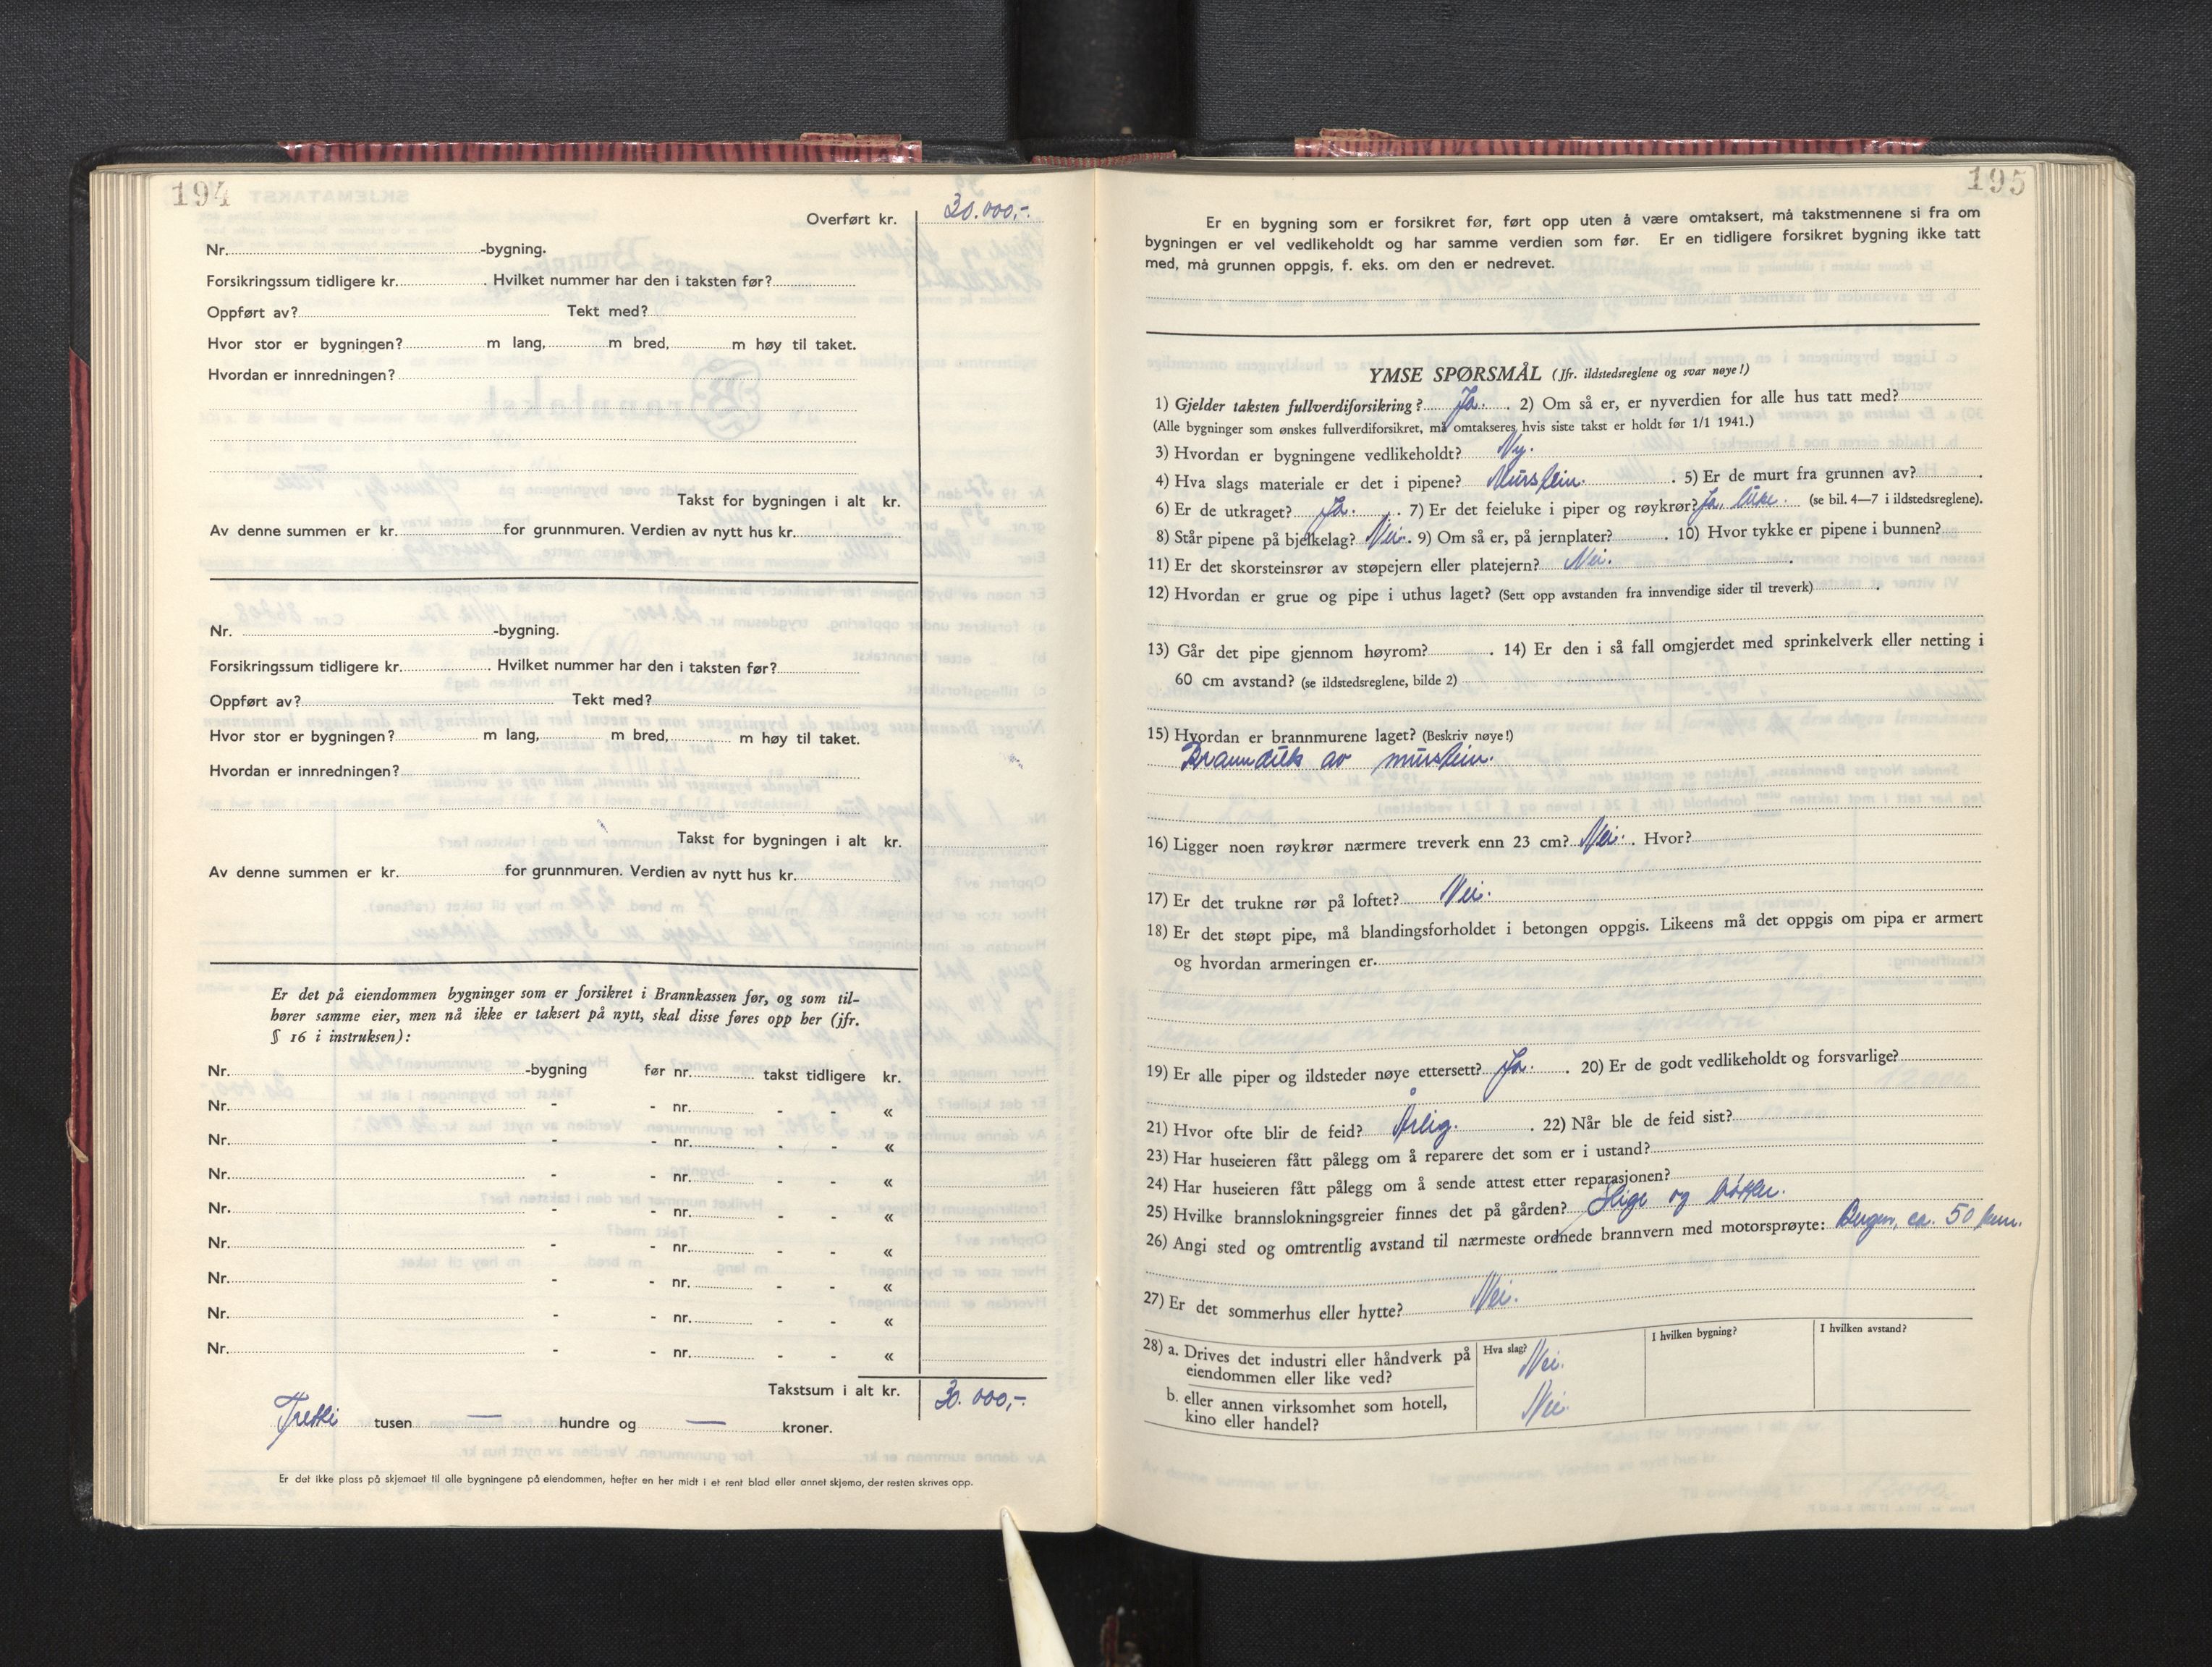 194
Overført kr. 30.000,-
Nr. -bygning.
Forsikringssum tidligere kr. . Hvilket nummer har den i taksten før?
Oppført av? Tekt med?
Hvor stor er bygningen? m lang, m bred, m høy til taket.
Hvordan er innredningen?
Takst for bygningen i alt kr.
Av denne summen er kr. for grunnmuren. Verdien av nytt hus kr.
Nr. -bygning.
Forsikringssum tidligere kr. . Hvilket nummer har den i taksten før?
Oppført av? Tekt med?
Hvor stor er bygningen? m lang, m bred, m høy til taket.
Hvordan er innredningen?
Takst for bygningen i alt kr.
Av denne summen er kr. for grunnmuren. Verdien av nytt hus kr.
Er det på eiendommen bygninger som er forsikret i Brannkassen før, og som til-
hører samme eier, men nå ikke er taksert på nytt, skal disse føres opp her (jfr.
§ 16 i instruksen):
Nr. -bygning før nr. takst tidligere kr.
Nr. - - nr. - - «
Nr. - - nr. - - «
Nr. - - nr. - - «
Nr. - - nr. - - «
Nr. - - nr. - - «
Nr. - - nr. - - «
Nr. - - nr. - - «
Nr. - - nr. - - «
Takstsum i alt kr. 30.000,-
Tretti tusen — hundre og — kroner.
Er det ikke plass på skjemaet til alle bygningene på eiendommen, hefter en her midt i et rent blad eller annet skjema, der resten skrives opp.
195
Er en bygning som er forsikret før, ført opp uten å være omtaksert, må takstmennene si fra om
bygningen er vel vedlikeholdt og har samme verdien som før. Er en tidligere forsikret bygning ikke tatt
med, må grunnen oppgis, f. eks. om den er nedrevet.
YMSE SPØRSMÅL (Jfr. ildstedsreglene og svar nøye!)
1) Gjelder taksten fullverdiforsikring? Ja. . 2) Om så er, er nyverdien for alle hus tatt med?
(Alle bygninger som ønskes fullverdiforsikret, må omtakseres hvis siste takst er holdt før 1/1 1941.)
3) Hvordan er bygningene vedlikeholdt? Ny.
4) Hva slags materiale er det i pipene? Murstein. . 5) Er de murt fra grunnen av? .
6) Er de utkraget? Ja. . 7) Er det feieluke i piper og røykrør? Ja, luke. (se bil. 4—7 i ildstedsreglene).
8) Står pipene på bjelkelag? Nei. . 9) Om så er, på jernplater? . 10) Hvor tykke er pipene i bunnen?
11) Er det skorsteinsrør av støpejern eller platejern? Nei. .
12) Hvordan er grue og pipe i uthus laget? (Sett opp avstanden fra innvendige sider til treverk) .
13) Går det pipe gjennom høyrom? . 14) Er den i så fall omgjerdet med sprinkelverk eller netting i
60 cm avstand? (se ildstedsreglene, bilde 2)
15) Hvordan er brannmurene laget? (Beskriv nøye!)
av murstein.
16) Ligger noen røykrør nærmere treverk enn 23 cm? Nei. . Hvor?
17) Er det trukne rør på loftet? Nei.
18) Er det støpt pipe, må blandingsforholdet i betongen oppgis. Likeens må det oppgis om pipa er armert
og hvordan armeringen er.
19) Er alle piper og ildsteder nøye ettersett? Ja. . 20) Er de godt vedlikeholdt og forsvarlige?
21) Hvor ofte blir de feid? Årlig. . 22) Når ble de feid sist?
23) Har huseieren fått pålegg om å reparere det som er i ustand?
24) Har huseieren fått pålegg om å sende attest etter reparasjonen?
25) Hvilke brannslokningsgreier finnes det på gården? Stige og bøtter.
26) Angi sted og omtrentlig avstand til nærmeste ordnede brannvern med motorsprøyte: Bergen, ca. 50 km.
27) Er det sommerhus eller hytte? Nei.
28) a. Drives det industri eller håndverk på eiendommen eller like ved? Hva slag? Nei. I hvilken bygning? I hvilken avstand?
b. eller annen virksomhet som hotell, kino eller handel? Nei